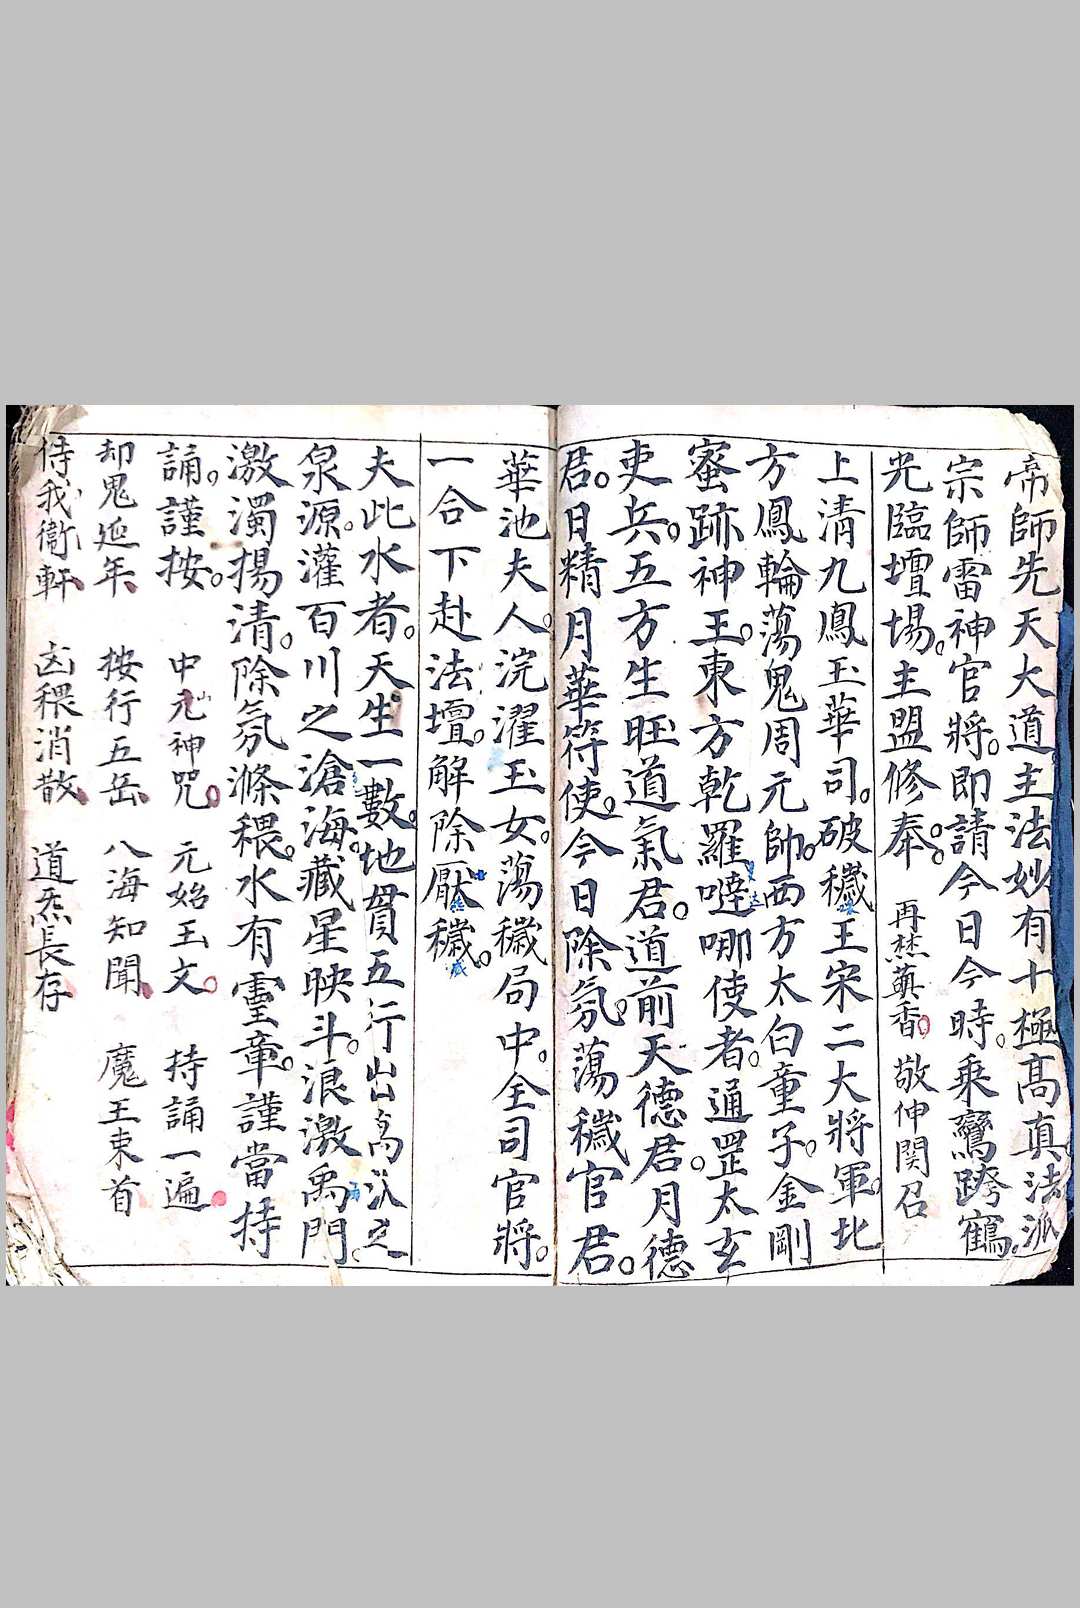 帝師先天大道主法妙有十極高真法派
宗師雷神官將。即請今日今時。乘鸞跨鶴。
光臨壇場。主盟修奉。再焚真香。敬伸関召
上清九鳳玉華司。破穢王宋二大將軍。北
方鳳輪蕩鬼周元帥。西方太白童子。金剛
蜜跡神王。東方乾羅噠哪使者。通罡太玄
吏兵。五方生旺道氣君。道前天德君。月德
君。日精月華符使。今日除氛蕩穢官君。
華池夫人。浣濯玉女。蕩穢局中。全司官將。
一合下赴法壇。解除厭穢。
夫此水者。天生一數。地貫五行出高深之
泉源。灌百川之滄海。藏星映斗。浪激禹門。
激濁揚清。除氛滌穢。水有靈章。謹當持
誦。謹按。 中元神咒。 元始玉文。 持誦一遍。
却鬼延年 按行五岳 八海知聞 魔王束首
侍我衛軒 凶穢消散 道炁長存